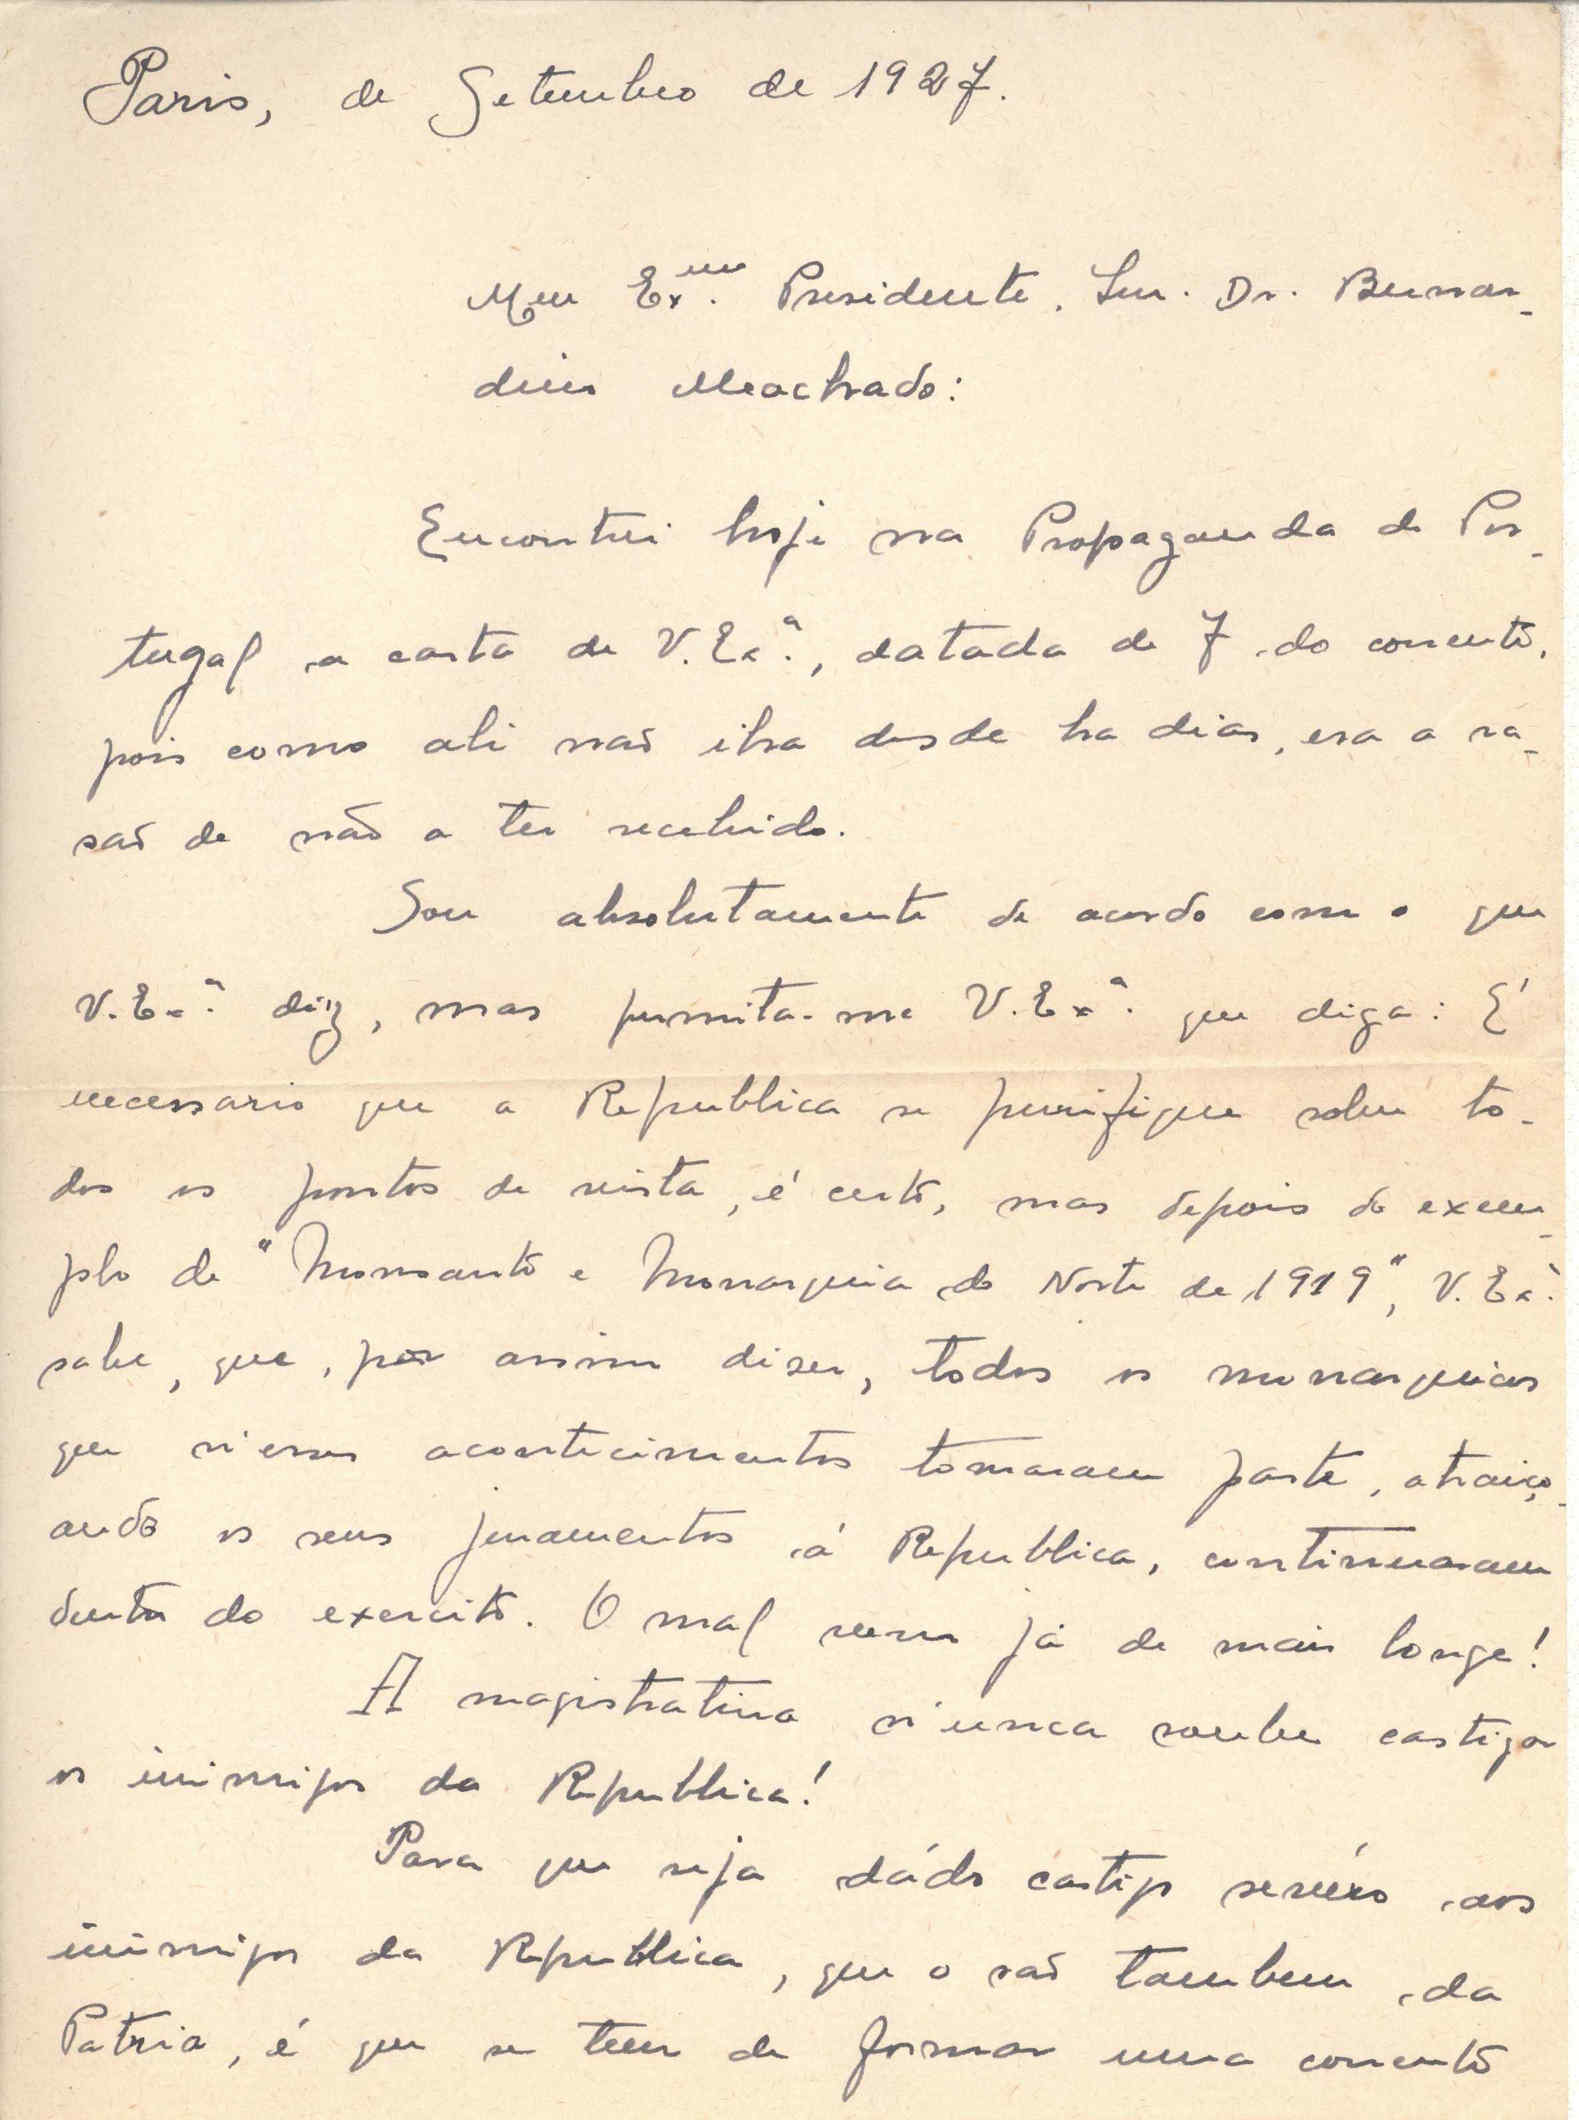 Paris, de Setembro de 1927.
Meu Exmo. Presidente. Snr. Dr. Bernar-
dino Machado:
Encontrei hoje na Propaganda de Por-
tugal a carta de V. Exª., datada de 7 do corrente,
pois como ali não iha desde ha dias, era a ra-
são de não a ter recebido.
Sou absolutamente de acordo com o que
V. Exª. diz, mas permita-me V. Exª. que diga: É
necessario que a Republica se purifique sobre to-
dos os pontos de vista, é certo, mas depois do exem-
plo de "Monsanto e Monarquia do Norte de 1919", V. Exª.
sabe, que, por assim diser, todos os monarquicos
que n'esses acontecimentos tomaram parte, atraiço-
ando os seus juramentos á Republica, continuaram
dentro do exercito. O mal vem já de mais longe!
A magistratura n'unca soube castigar
os inimigos da Republica!
Para que seja dádo castigo sevéro aos
inimigos da Republica, que o são tambem da
Patria, é que se tem de formar uma corrente